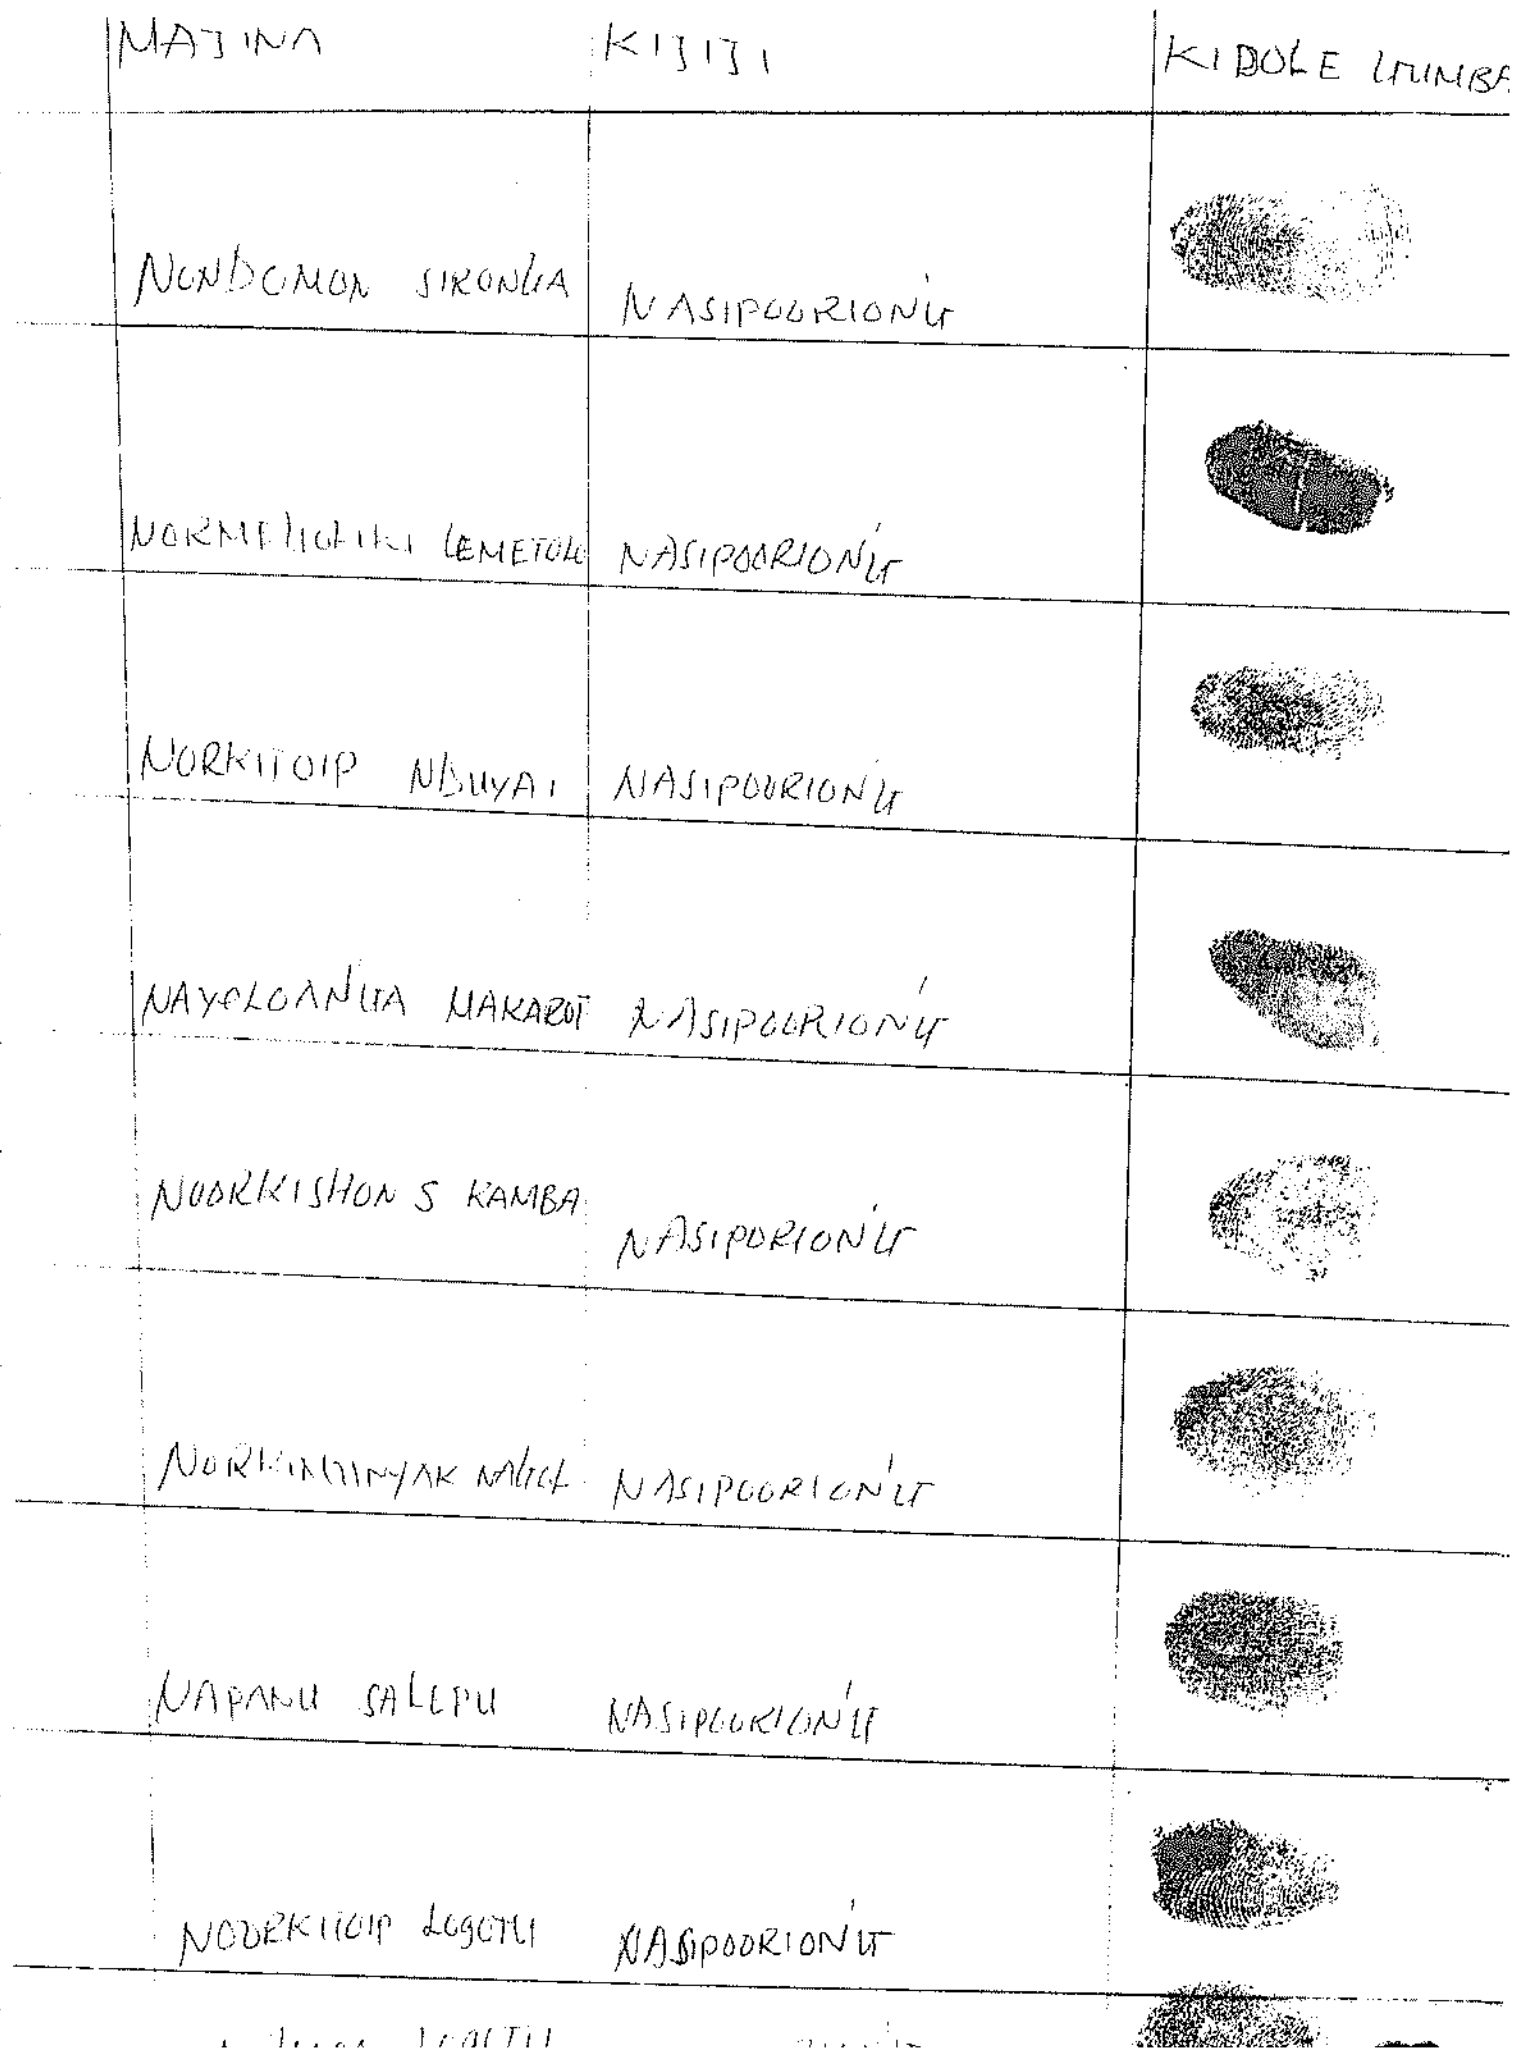 MAJINA KIJIJI KIDOLE GUMBA
NONDOMON SIRONGA NASIPOORION'G
LEMETOLO NASIPOORION'G
NORKITOIP NDUYAI NASIPOORION'G
NAYOLOAN'GA MAKAROT NASIPOORION'G
NOORKISHON S KAMBA NASIPORION'G
NASIPOORION'G
NAPANU SALEPU NASIPOORION'G
NOORKITOIP NASIPOORION'G